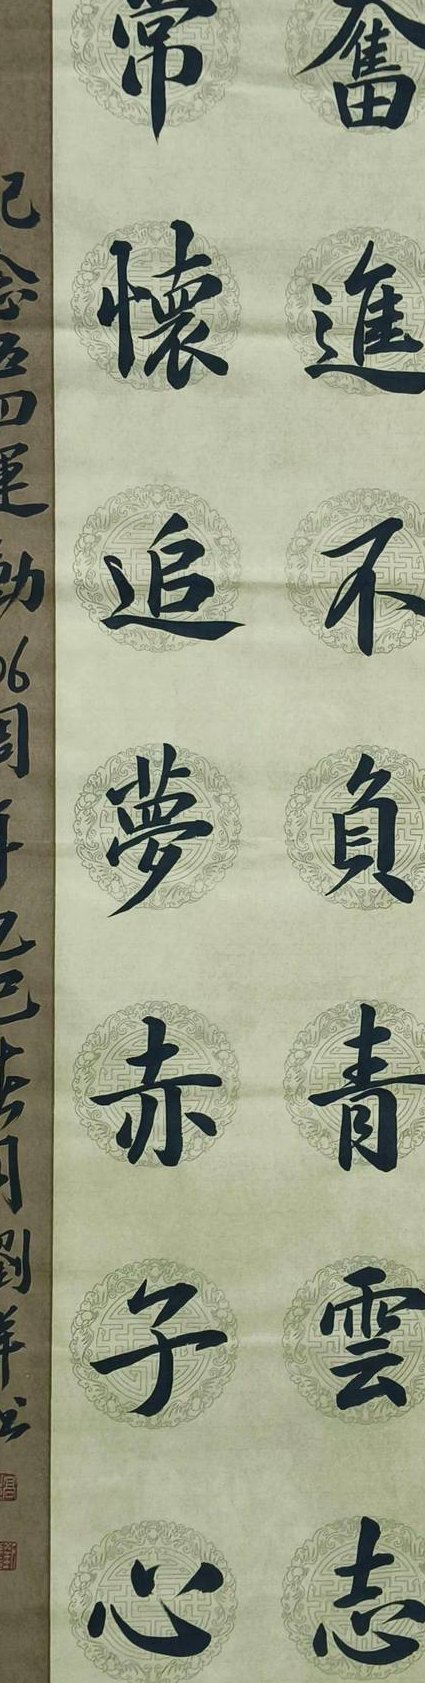 奮進不負青雲志
常懷追夢赤子心
紀念五四運動106周年乙巳春月劉祥書